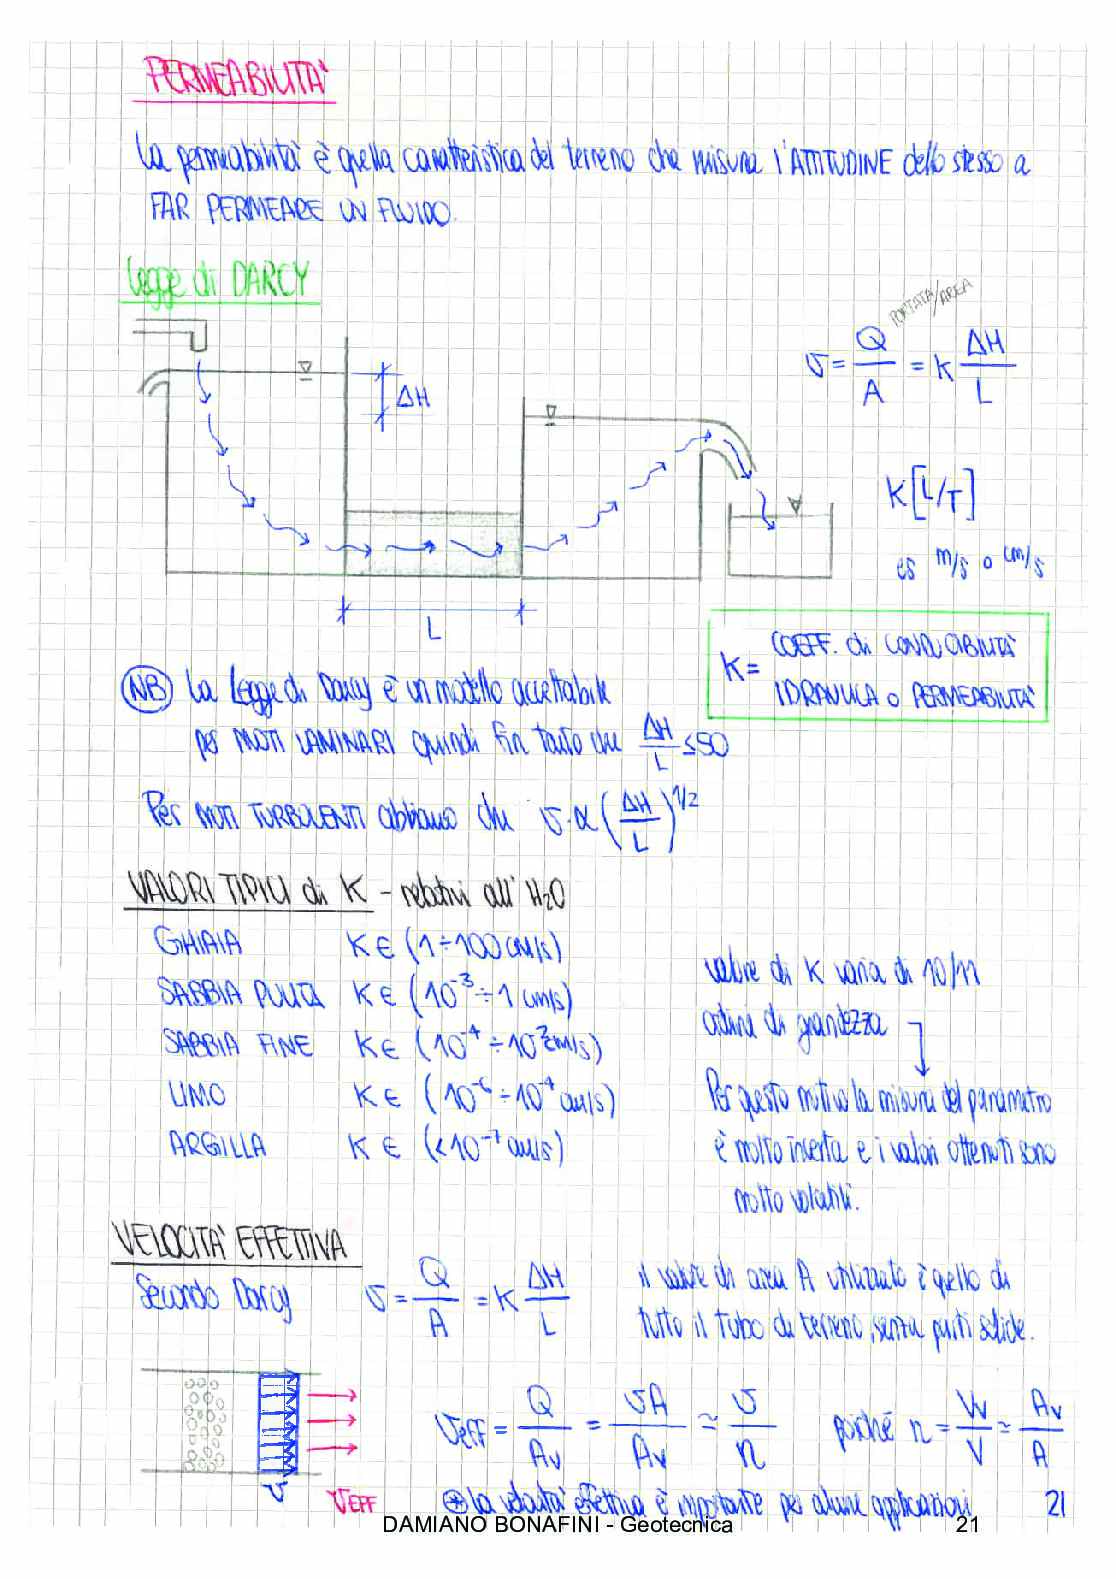 PERMEABILITA'
La permeabilità è quella caratteristica del terreno che misura l'ATTITUDINE dello stesso a
FAR PERMEARE UN FLUIDO.
Legge di DARCY
PORTATA/AREA
v = Q/A = K ΔH/L
ΔH
K [L/T]
es m/s o cm/s
L
K = COEFF. di CONDUCIBILITA'
IDRAULICA o PERMEABILITA'
NB La Legge di Darcy è un modello accettabile
per MOTI LAMINARI quindi fin tanto che ΔH/L ≤ 50
Per MOTI TURBOLENTI abbiamo che v · α (ΔH/L)^1/2
VALORI TIPICI di K - relativi all' H2O
GHIAIA K ∈ (1 ÷ 100 cm/s)
SABBIA PULITA K ∈ (10^-3 ÷ 1 cm/s)
SABBIA FINE K ∈ (10^-4 ÷ 10^-2 cm/s)
LIMO K ∈ (10^-6 ÷ 10^-4 cm/s)
ARGILLA K ∈ (<10^-7 cm/s)
valore di K varia di 10/11
ordini di grandezza
Per questo motivo la misura del parametro
è molto incerta e i valori ottenuti sono
molto volatili.
VELOCITA' EFFETTIVA
Secondo Darcy v = Q/A = K ΔH/L
il valore di area A utilizzato è quello di
tutto il tubo di terreno, senza parti solide.
v
VEFF
VEFF = Q/Av = vA/Av ≃ v/n poiché n = Vv/V ≃ Av/A
⊛ La velocità effettiva è importante per alcune applicazioni
21
DAMIANO BONAFINI - Geotecnica
21